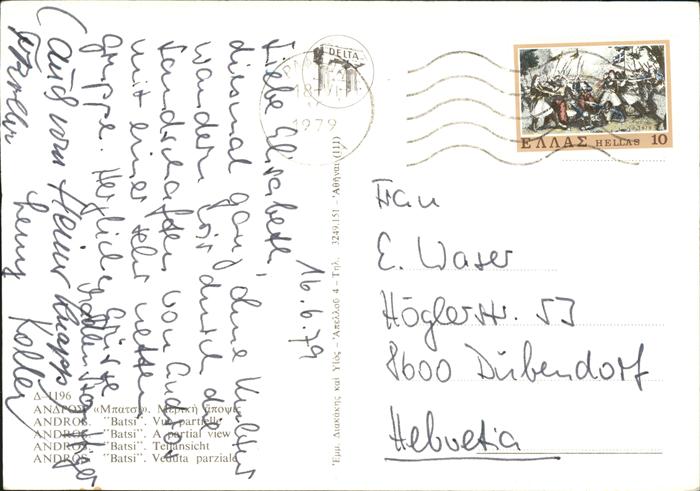 16.6.79
Liebe Elisabeth,
diesmal ganz ohne Kultur
wandern wir durch die
Landschaften von Andros
mit einer sehr netten
Gruppe. Herzliche Grüsse
(auch von Heiner Knapp
Leny Koller
DELTA
18
1979
ΕΛΛΑΣ HELLAS 10
Frau
E. Waser
Höglerstr. 53
8600 Dübendorf
Helvetia
Δ-1196
ΑΝΔΡΟΣ. «Μπατσί». Μερική άποψις
ANDROS. "Batsi". Vue partielle
ANDROS. "Batsi". A partial view
ANDROS. "Batsi". Teilansicht
ANDROS. "Batsi". Veduta parziale
Εμμ. Διακάκης καί Υἱός - Ἀπέλλου 4 - Τηλ. 3249.151 - Ἀθῆναι (111)